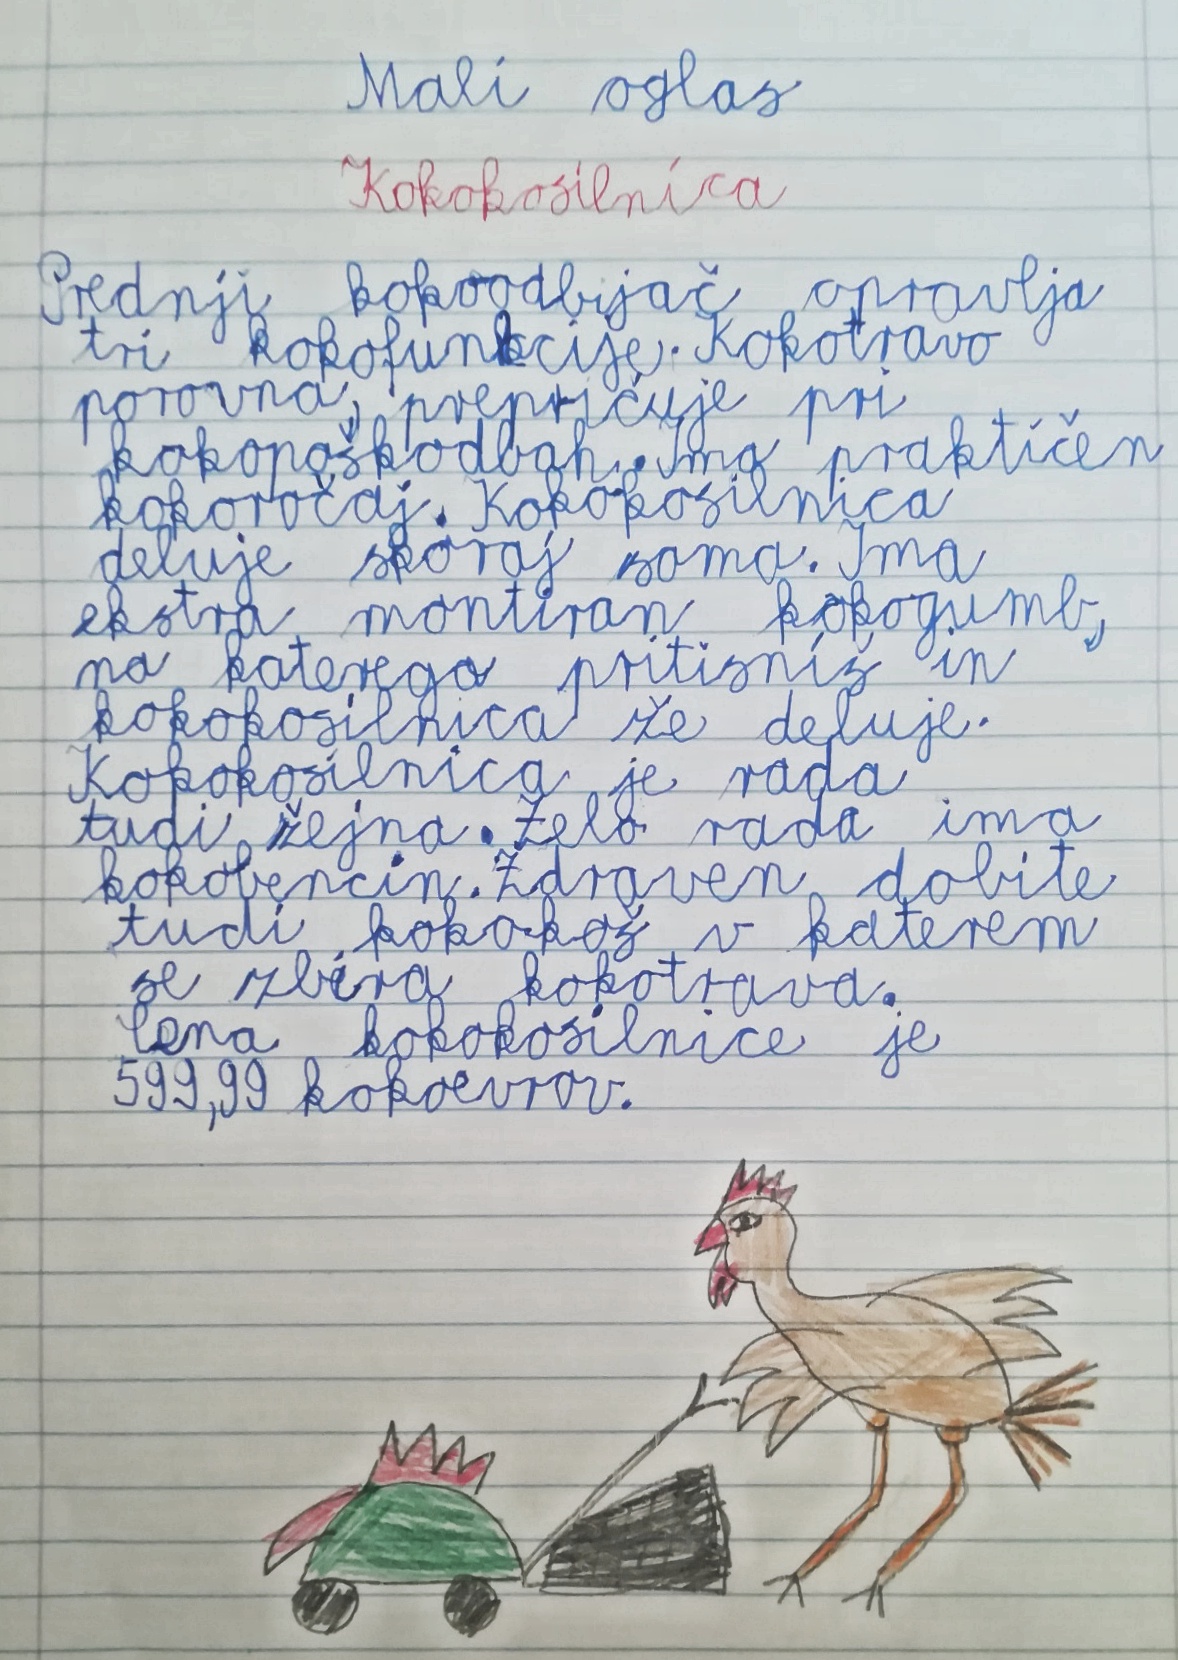 Mali oglas
Kokokosilnica
Prednji kokoodbijač opravlja
tri kokofunkcije. Kokotravo
porovna, prepričuje pri
kokopoškodbah. Ima praktičen
kokoročaj. Kokokosilnica
deluje skoraj sama. Ima
ekstra montiran kokogumb,
na katerega pritisniš in
kokokosilnica že deluje.
Kokokosilnica je rada
tudi žejna. Zelo rada ima
kokobencin. Zdraven dobite
tudi kokokoš v katerem
se zbira kokotrava.
Cena kokokosilnice je
599,99 kokoevrov.